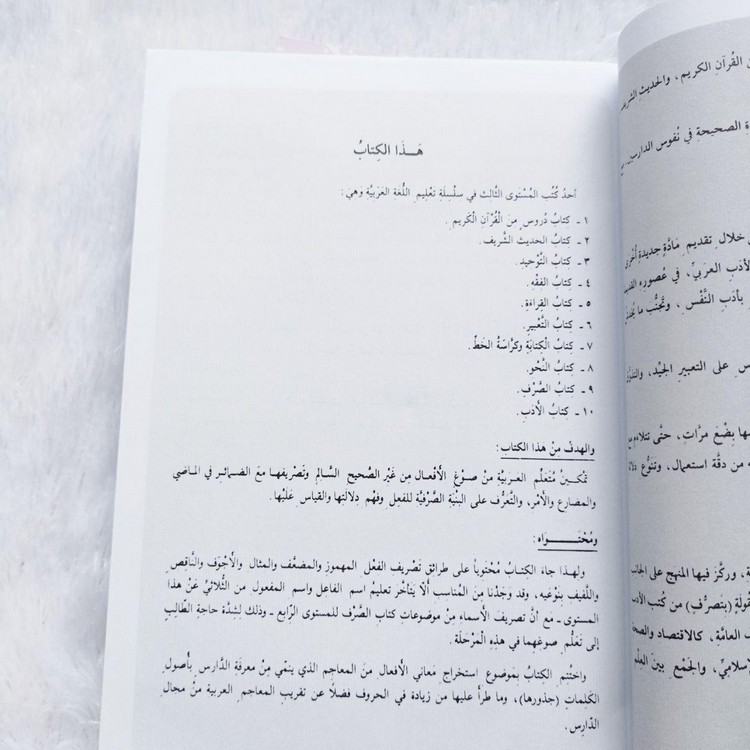 هَـذَا الكِتابُ
أحدُ كُتُب المُسْتوى الثَّالث في سلْسِلَةِ تَعْليمِ اللُّغَة العَرَبيَّةِ وَهيَ :
١ - كتابُ دُروسٍ منَ القُرْآنِ الْكَريمِ .
٢ - كتابُ الحديث الشَّريف .
٣ - كتابُ التَّوْحيدِ .
٤ - كتابُ الفقْهِ .
٥ - كتابُ القِراءَةِ .
٦ - كِتابُ التَّعْبيرِ .
٧ - كِتابُ الْكِتابَةِ وكرَّاسَةُ الخَطِّ .
٨ - كتابُ النَّحْوِ .
٩ - كتابُ الصَّرْفِ .
١٠ - كتابُ الأدَبِ .
والهدفُ مِنْ هَذا الكِتابِ :
تمْكـينُ مُتَعلِّمِ العـربيَّةِ منْ صوْغِ الأفْعـالِ مِن غَيْر الصَّحيحِ السَّـالمِ وتَصْريفهـا معَ الضـمائـرِ في المـاضي
والمضارعِ والأمْرِ، والتَّعَرُّفِ على البُنْيَةِ الصَّرْفيَّةِ للفعْلِ وفهْمِ دِلالتِها والقياسِ عَلَيْها .
ومُحْتَـــواه :
ولهـذا جاءَ الكِتـابُ مُحْتَوياً على طرائق تَصْريفِ الفِعْلِ المهموزِ والمضعَّف والمثال والأجْوَفِ والنَّاقصِ
واللَّفيفِ بنَوْعَيهِ، وقد وَجَدْنا مِنَ المناسبِ ألَّا يَتأخَّرَ تعليمُ اسم الفاعل واسم المفعول من الثُّلاثيِّ عَنْ هذا
المستوى ـ مع أنَّ تصريفَ الأسماءِ مِنْ موضوعاتِ كتاب الصَّرْفِ للمستوى الرَّابعِ ـ وذلك لِشِدَّة حاجةِ الطَّالبِ
إلى تَعَلُّمِ صوغهما في هَذِهِ الْمَرْحلَةِ .
واختُتِمَ الكِتابُ بمَوضوع استخراج معَاني الأفعالِ منَ المعاجم الذي ينمّي مِنْ معرفةِ الدَّارسِ بأصُولِ
الكَلِماتِ (جذورها)، وما طرأَ عليها من زيادة في الحروف فضلًا عن تقريبِ المعاجمِ العربية منْ مجال
الدَّارس .
القُرآنِ الكريم، والحديثِ الشريف
الصحيحة في نُفوس الدارسين
خلال تقديمِ مَادَّةٍ جديدةٍ أُخرى
الأدَبِ العرَبيِّ، في عُصورِه
بأدَبِ النَّفْسِ ، وتَجنُّب ما
على التعبيرِ الجيِّد،
بِضْعَ مرَّاتٍ، حتَّى تتلاءم مع
من دقَّة استعمال، وتنوُّع
وركَّز فيها المنهج على الجانب
(بتصرُّفٍ) من كُتب الأدب
العامَّة، كالاقتصاد والصحة
والجَمْعِ بينَ العِلْم